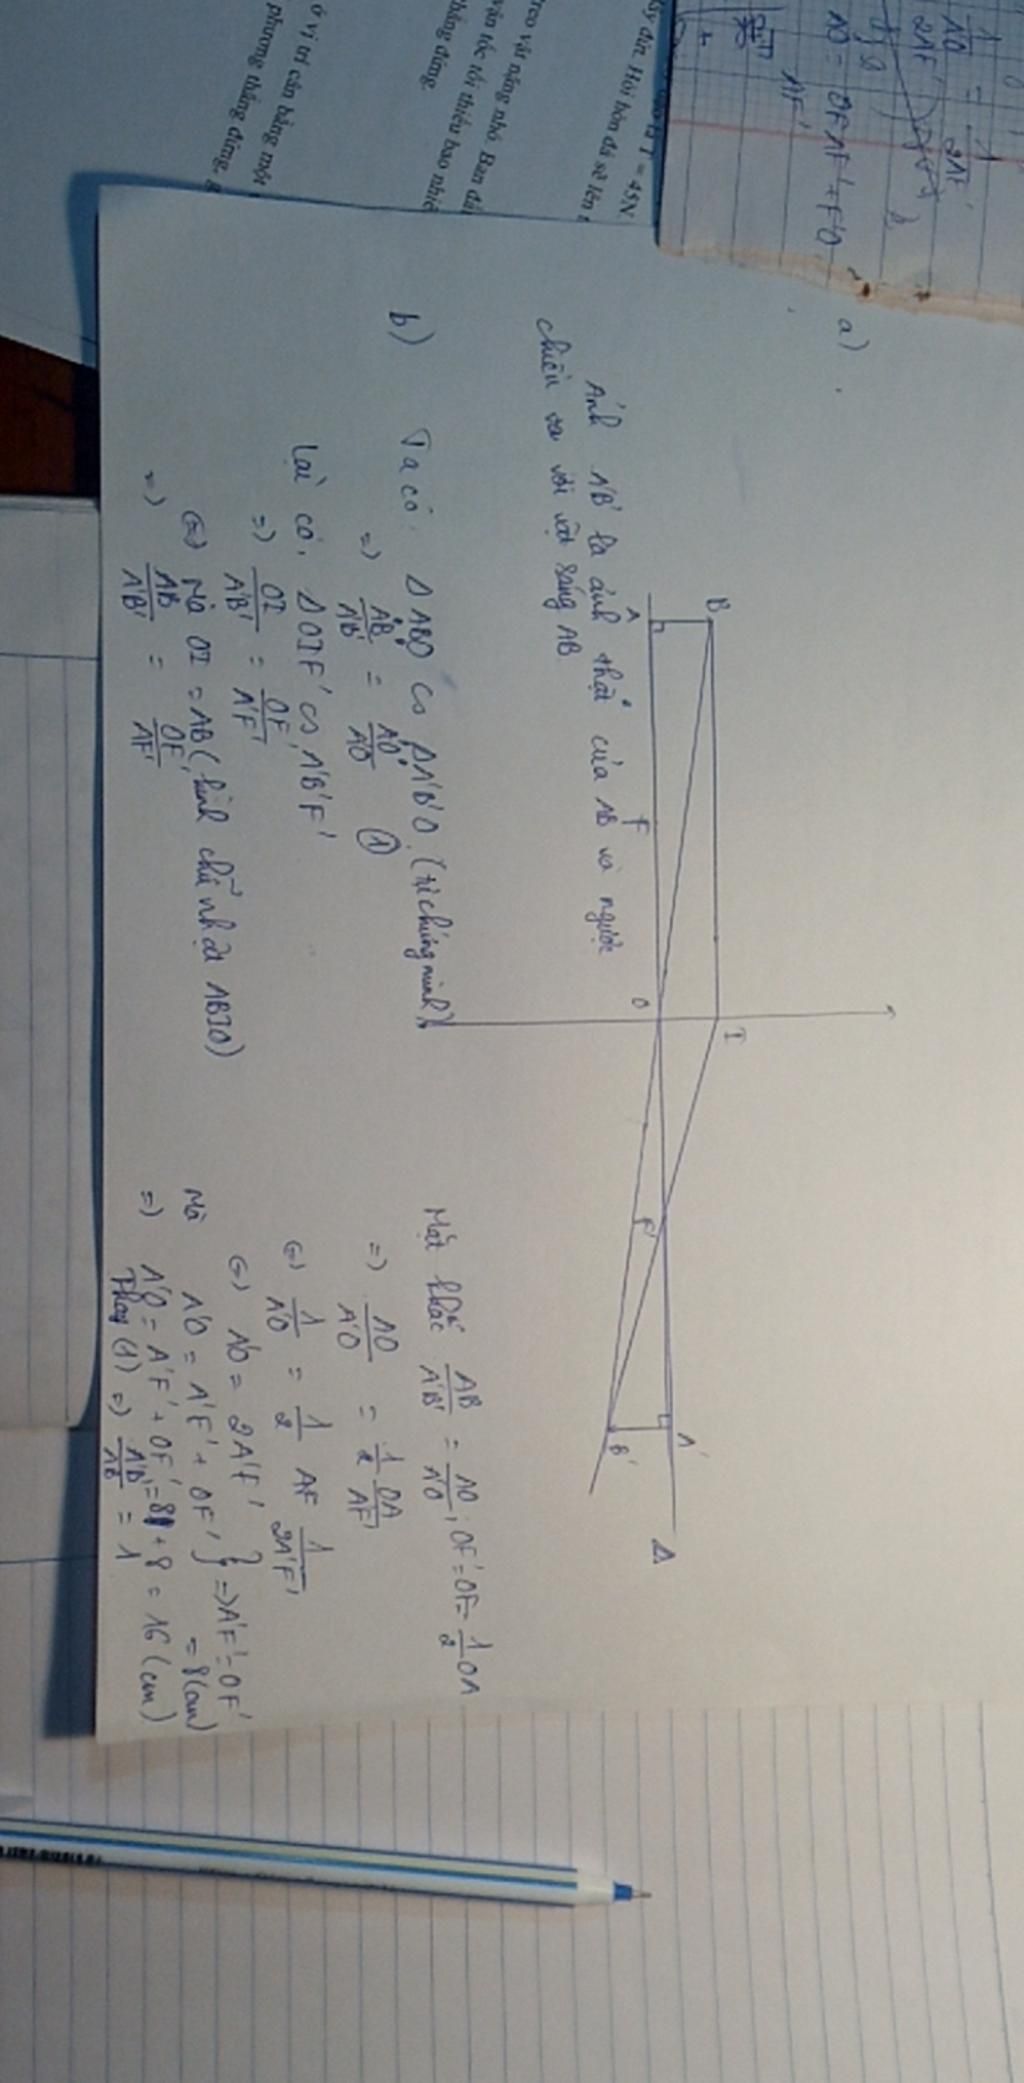 a)
B
I
A
F
O
F'
A'
B'
Δ
Ảnh A'B' là ảnh thật của AB và ngược
chiều với vật sáng AB
b) Ta có: Δ ABO ∽ ΔA'B'O (tự chứng minh)
=> AB/A'B' = AO/A'O (1)
Lại có, Δ OIF' ∽ A'B'F'
=> OI/A'B' = OF'/A'F'
(=) Mà OI = AB (hình chữ nhật ABIO)
=> AB/A'B' = OF'/A'F'
Mặt khác AB/A'B' = AO/A'O; OF' = OF = 1/2 OA
=> AO/A'O = 1/2 OA/A'F'
(=) 1/A'O = 1/2 AF 1/2A'F'
(=) A'O = 2A'F'
Mà A'O = A'F' + OF' } => A'F' = OF'
= 8(cm)
=> A'O = A'F' + OF' = 8 + 8 = 16 (cm)
Thay (1) => A'B'/AB = 1
1/A'O = 1/2A'F'
2A'F'
A'O = OF
A'F' + F'O
A'F'
T = 45N
kỳ đứt. Hỏi hòn đá sẽ lên
treo vật nặng nhỏ. Ban đầ
vận tốc tối thiểu bao nhiê
thẳng đứng.
ở vị trí cân bằng một
phương thẳng đứng, g